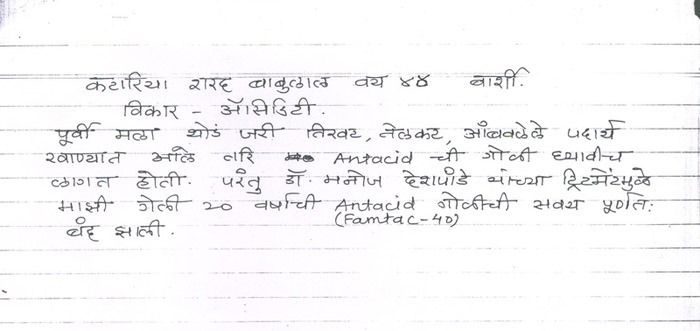 कटारिया शरद बाबुलाल वय ४४ बार्शी.
विकार - ॲसिडिटी.
पूर्वी मला थोडं जरी तिखट, तेलकट, आंबवलेले पदार्थ
खाण्यात आले तरि Antacid ची गोळी घ्यावीच
लागत होती. परंतु डॉ. मनोज देशपांडे यांच्या ट्रिटमेंटमुळे
माझी गेली २० वर्षाची Antacid गोळीची सवय पूर्णतः
(Famtac-40)
बंद झाली.